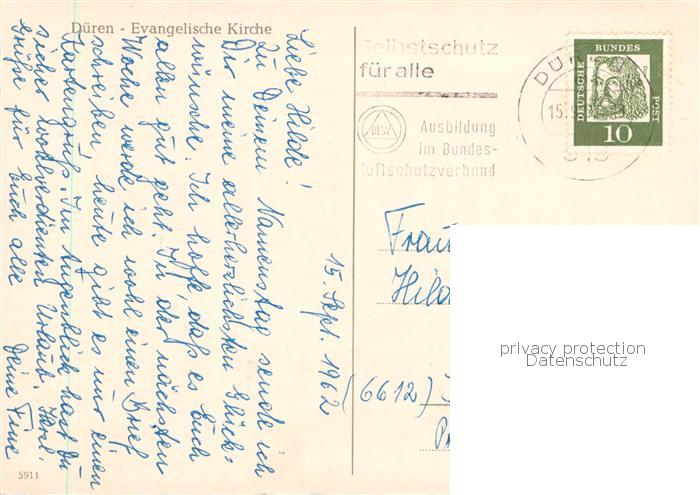 Düren - Evangelische Kirche
15. Sept. 1962
Liebe Hilde!
Zu Deinem Namenstag sende ich
Dir meine allerherzlichsten Glück-
wünsche. Ich hoffe, daß es Euch
allen gut geht. In der nächsten
Woche werde ich wohl einen Brief
schreiben, heute gibt es nur einen
Kartengruß. Im Augenblick hast Du
sicher wohlverdienten Urlaub. Herzl.
Grüße für Euch alle
Deine Fine
5911
Selbstschutz
für alle
BLSV
Ausbildung
im Bundes-
luftschutzverband
15.9
DEUTSCHE
BUNDES
POST
10
Frau
Hild
(6612)
privacy protection
Datenschutz